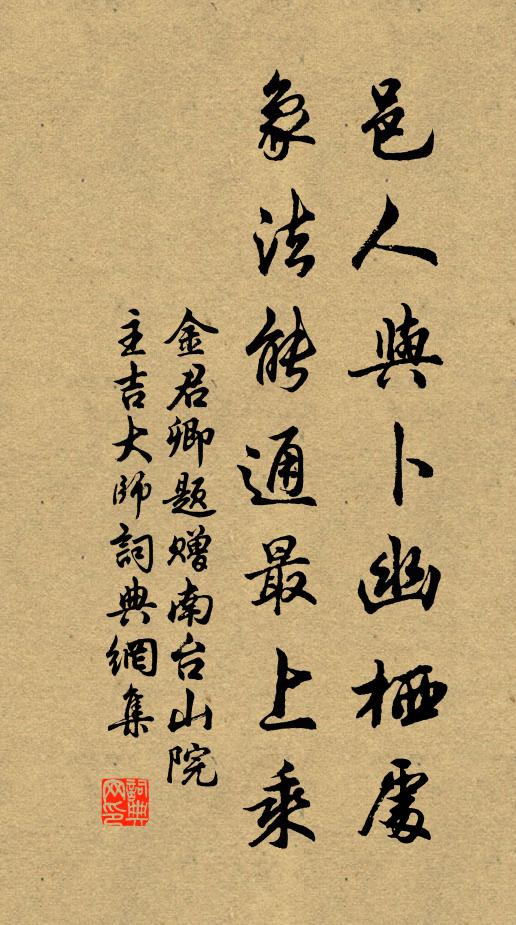 邑人與卜幽栖處
象法能通最上乘
金君卿題贈南台山院
主吉大師詞典網集
詞典
网印